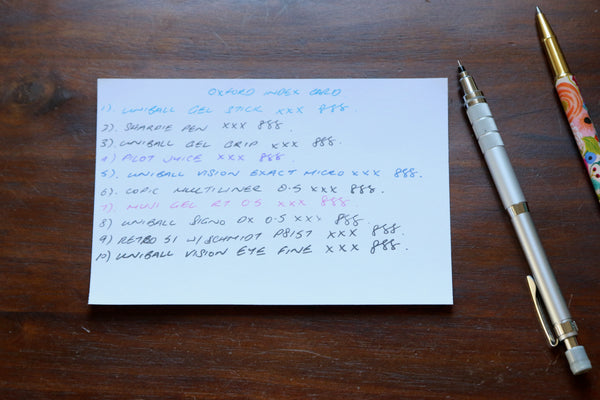 OXFORD INDEX CARD
1). UNIBALL GEL STICK XXX 888.
2). SHARPIE PEN XXX 888.
3). UNIBALL GEL GRIP XXX 888.
4) PILOT JUICE XXX 888.
5). UNIBALL VISION EXACT MICRO XXX 888.
6). COPIC MULTILINER 0.5 XXX 888.
7). MUJI GEL RT 0.5 XXX 888.
8) UNIBALL SIGNO DX 0.5 XXX 888.
9) RETRO 51 W/SCHMIDT P8151 XXX 888.
10) UNIBALL VISION EYE FINE XXX 888.